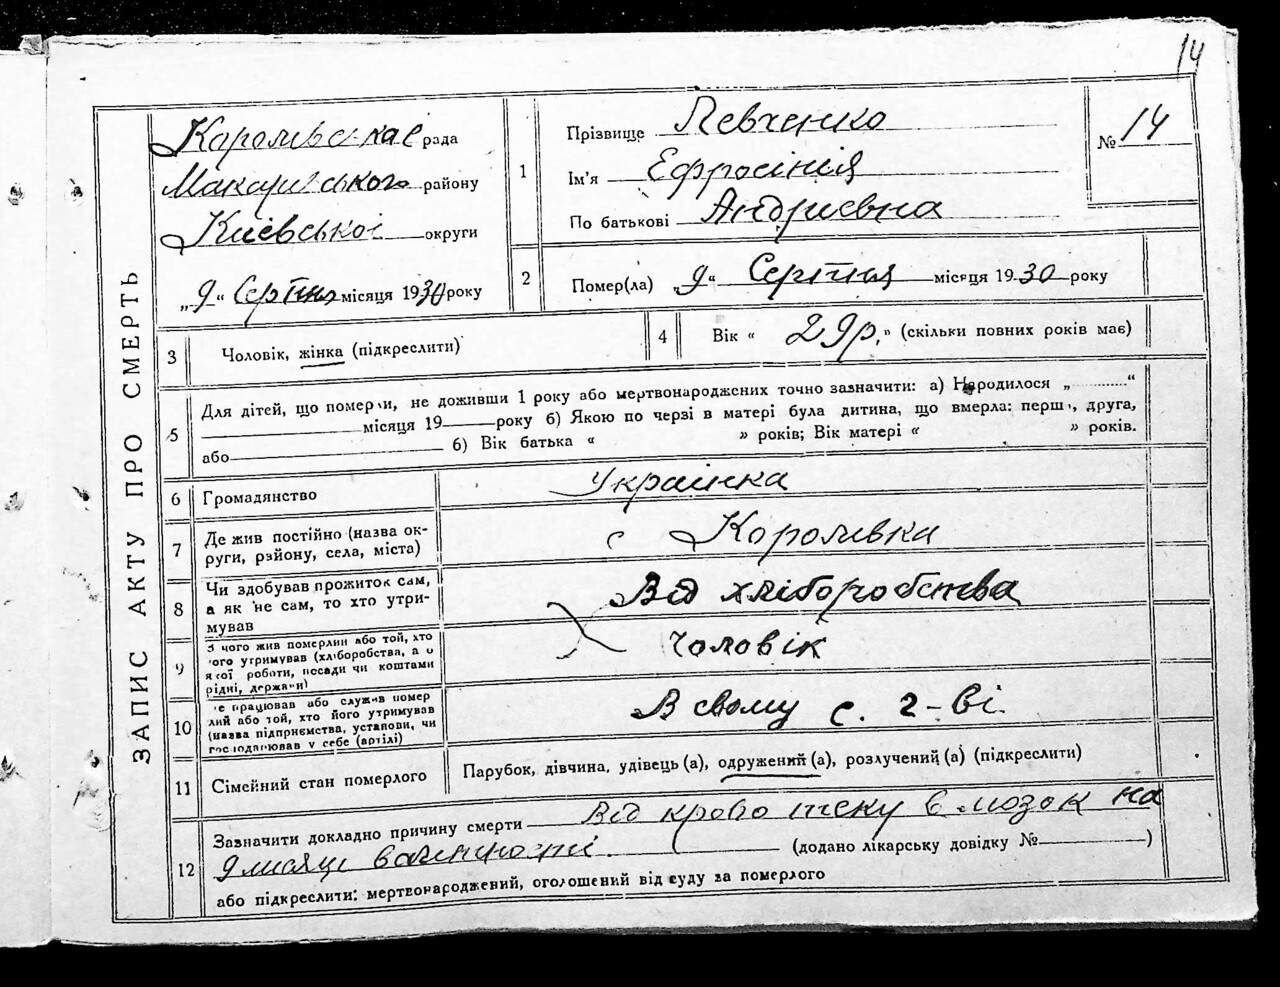 14
ЗАПИС АКТУ ПРО СМЕРТЬ
Королівськає рада
Макарівського району
Киівськоі округи
„9“ Серпня місяця 1930 року
1
Прізвище Левченко
Ім'я Ефросінія
По батькові Андриєвна
№ 14
2
Помер(ла) „9“ Серпня місяця 1930 року
3
Чоловік, жінка (підкреслити)
4
Вік « 29р. » (скільки повних років має)
5
Для дітей, що померли, не доживши 1 року або мертвонароджених точно зазначити: а) Народилося „ “
місяця 19 року б) Якою по черзі в матері була дитина, що вмерла: перша, друга,
або б) Вік батька « » років; Вік матері « » років.
6
Громадянство
Украінка
7
Де жив постійно (назва ок-
руги, району, села, міста)
с Королівка
8
Чи здобував прожиток сам,
а як не сам, то хто утри-
мував
Від хліборобства
9
З чого жив померлий або той, хто
його утримував (хліборобства, а о
якої роботи, посади чи коштами
рідні, держави)
Чоловік
10
Де працював або служив помер
лий або той, хто його утримував
(назва підприємства, установи, чи
господарював у себе (артілі)
В свому с. г-ві.
11
Сімейний стан померлого
Парубок, дівчина, удівець (а), одружений (а), розлучений (а) (підкреслити)
12
Зазначити докладно причину смерти Від кровотеку в мозок на
9 місяці вагітності (додано лікарську довідку № )
або підкреслити: мертвонароджений, оголошений від суду за померлого